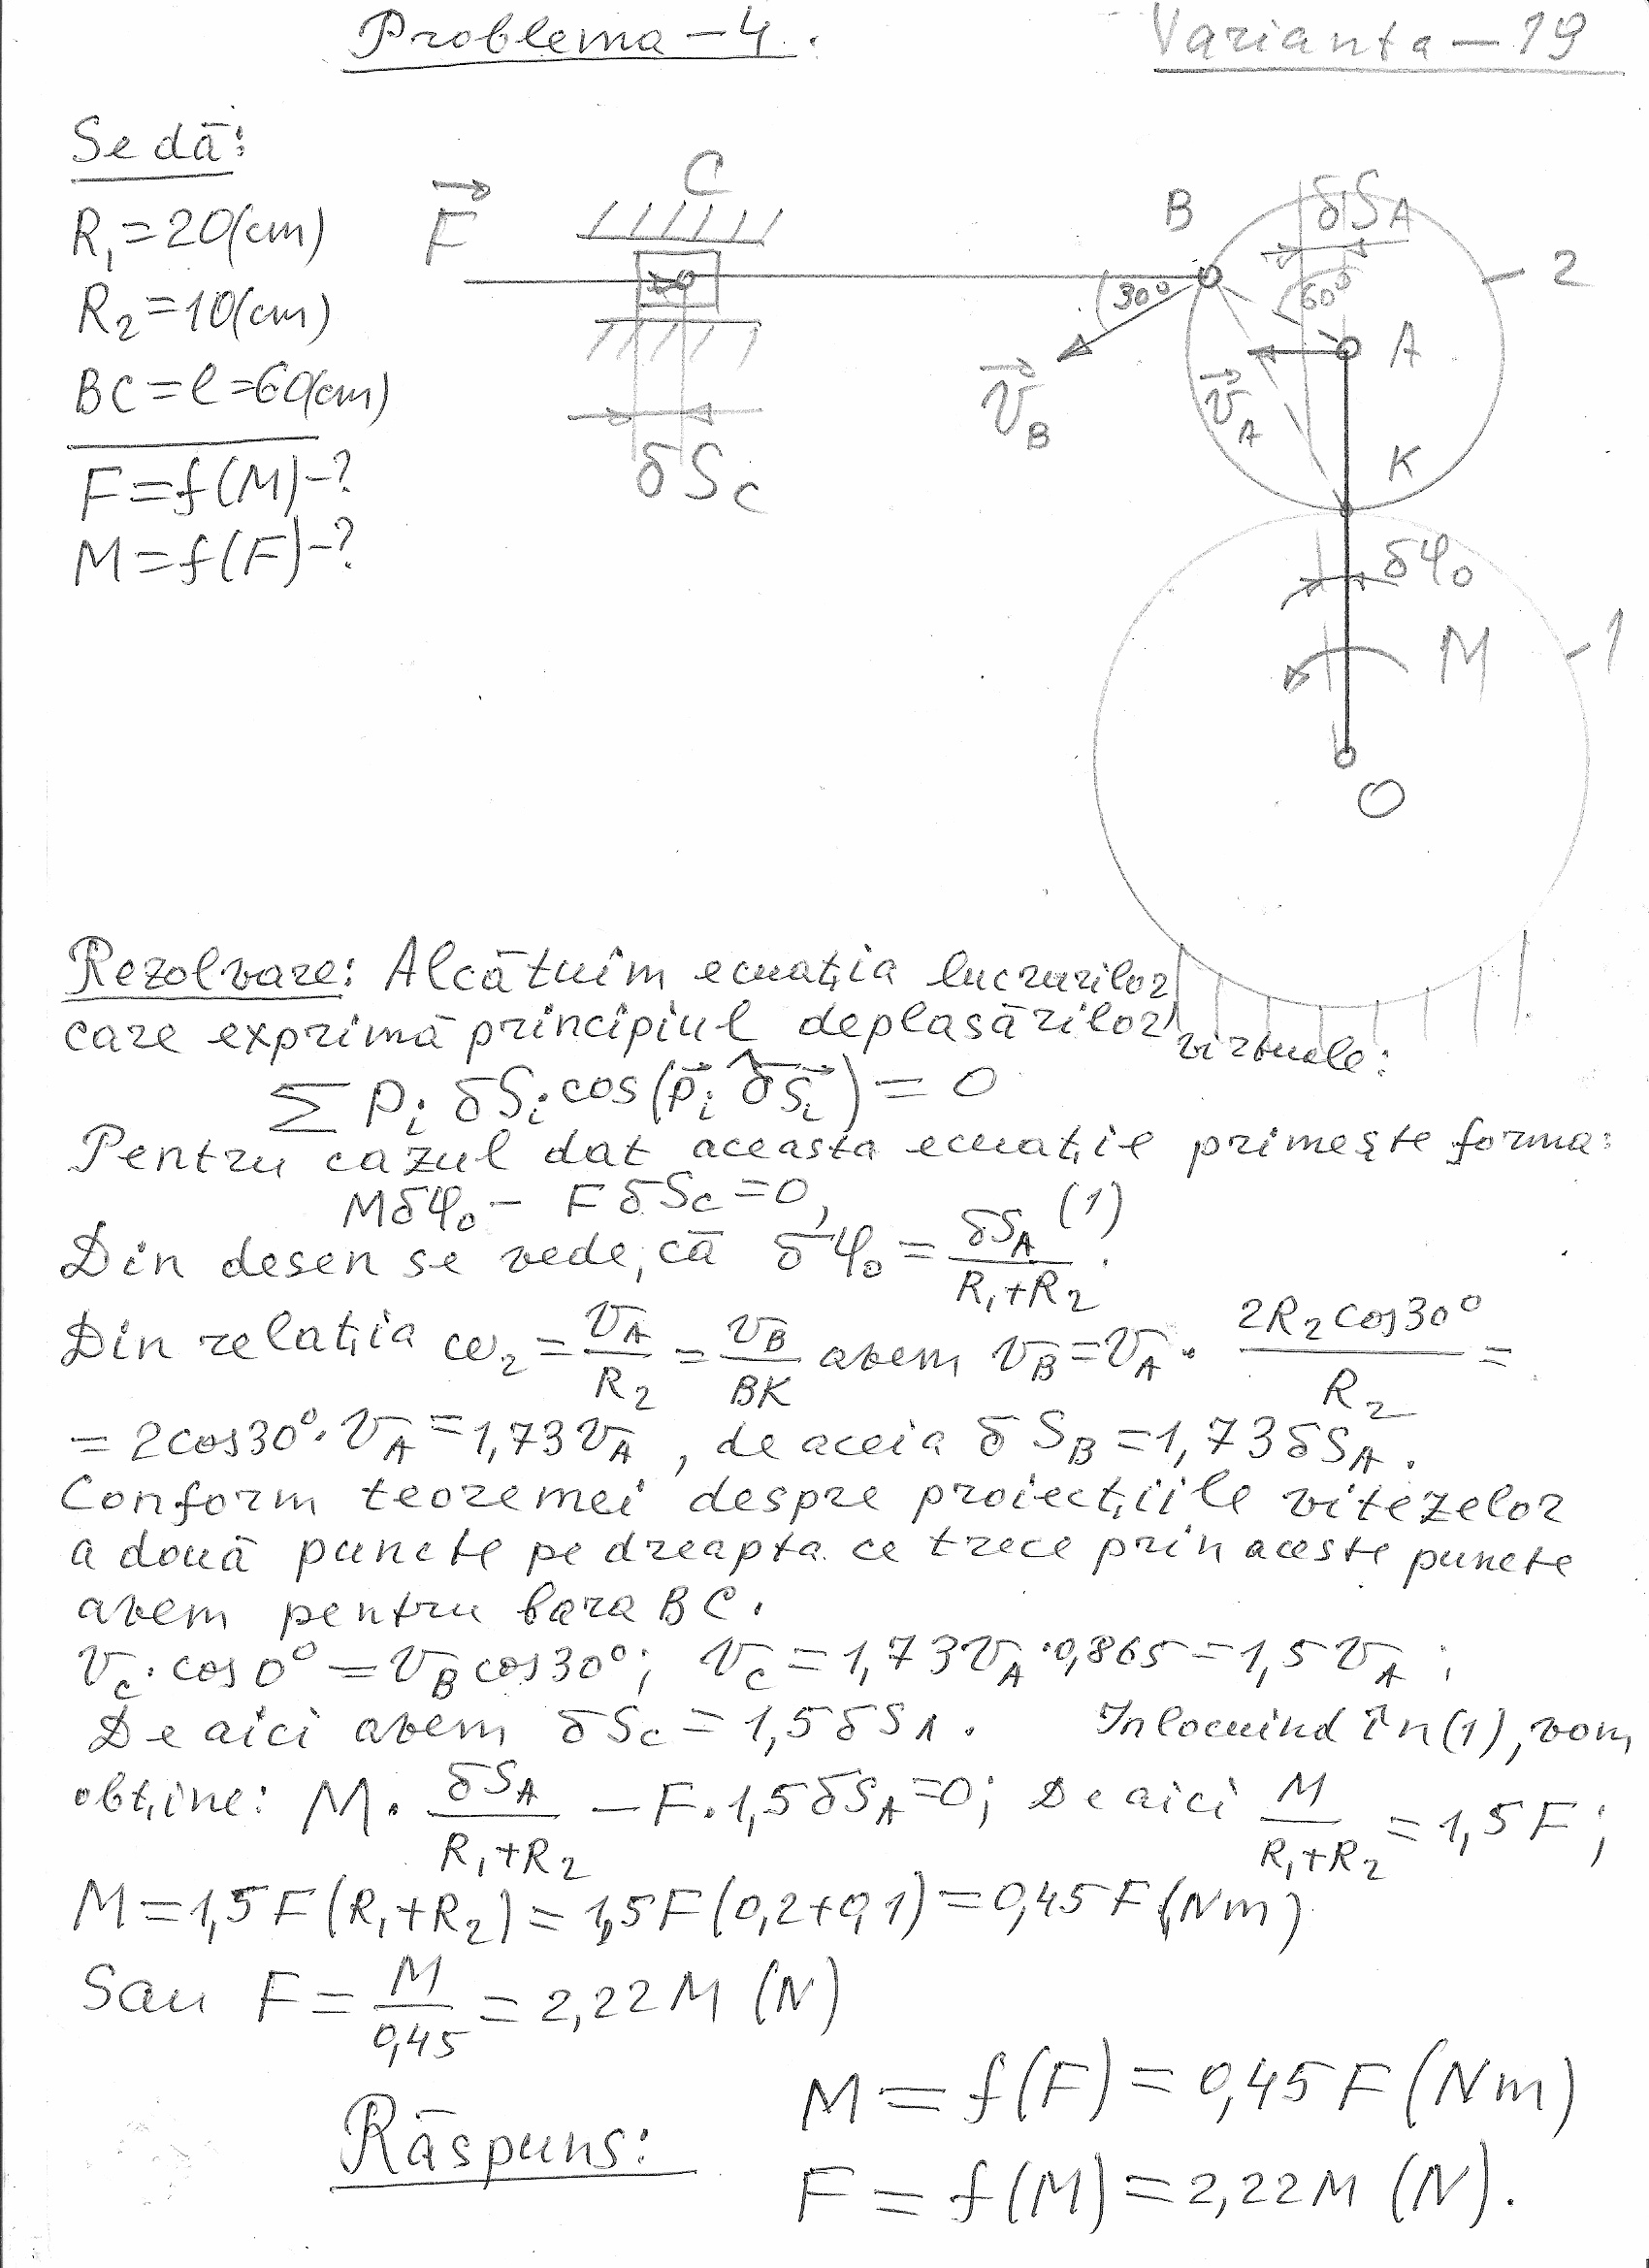 Problema – 4.
Varianta – 19
Se dă:
R₁=20(cm)
R₂=10(cm)
BC=l=60(cm)
F=f(M)-?
M=f(F)-?
F
C
δSc
B
δSA
2
30°
60°
A
vB
vA
K
δφ₀
M
1
O
Rezolvare: Alcătuim ecuația lucrurilor
care exprimă principiul deplasărilor virtuale:
Σ Pi δSi cos(Pi δSi) = 0
Pentru cazul dat aceasta ecuație primește forma:
Mδφ₀ – FδSc = 0, (1)
Din desen se vede, că δφ₀ = δSA / (R₁+R₂).
Din relația ω₂ = vA/R₂ = vB/BK avem vB = vA · 2R₂cos30°/R₂ =
= 2cos30°·vA = 1,73vA, de aceia δSB = 1,73δSA.
Conform teoremei despre proiecțiile vitezelor
a două puncte pe dreapta ce trece prin aceste puncte
avem pentru bara BC.
vc·cos0° = vB cos30°; vc = 1,73vA·0,865 = 1,5vA;
De aici avem δSc = 1,5δSA. Inlocuind în (1), vom
obține: M· δSA/(R₁+R₂) – F·1,5δSA = 0; De aici M/(R₁+R₂) = 1,5F;
M = 1,5F(R₁+R₂) = 1,5F(0,2+0,1) = 0,45F (Nm)
Sau F = M/0,45 = 2,22M (N)
Răspuns:
M = f(F) = 0,45F (Nm)
F = f(M) = 2,22M (N).